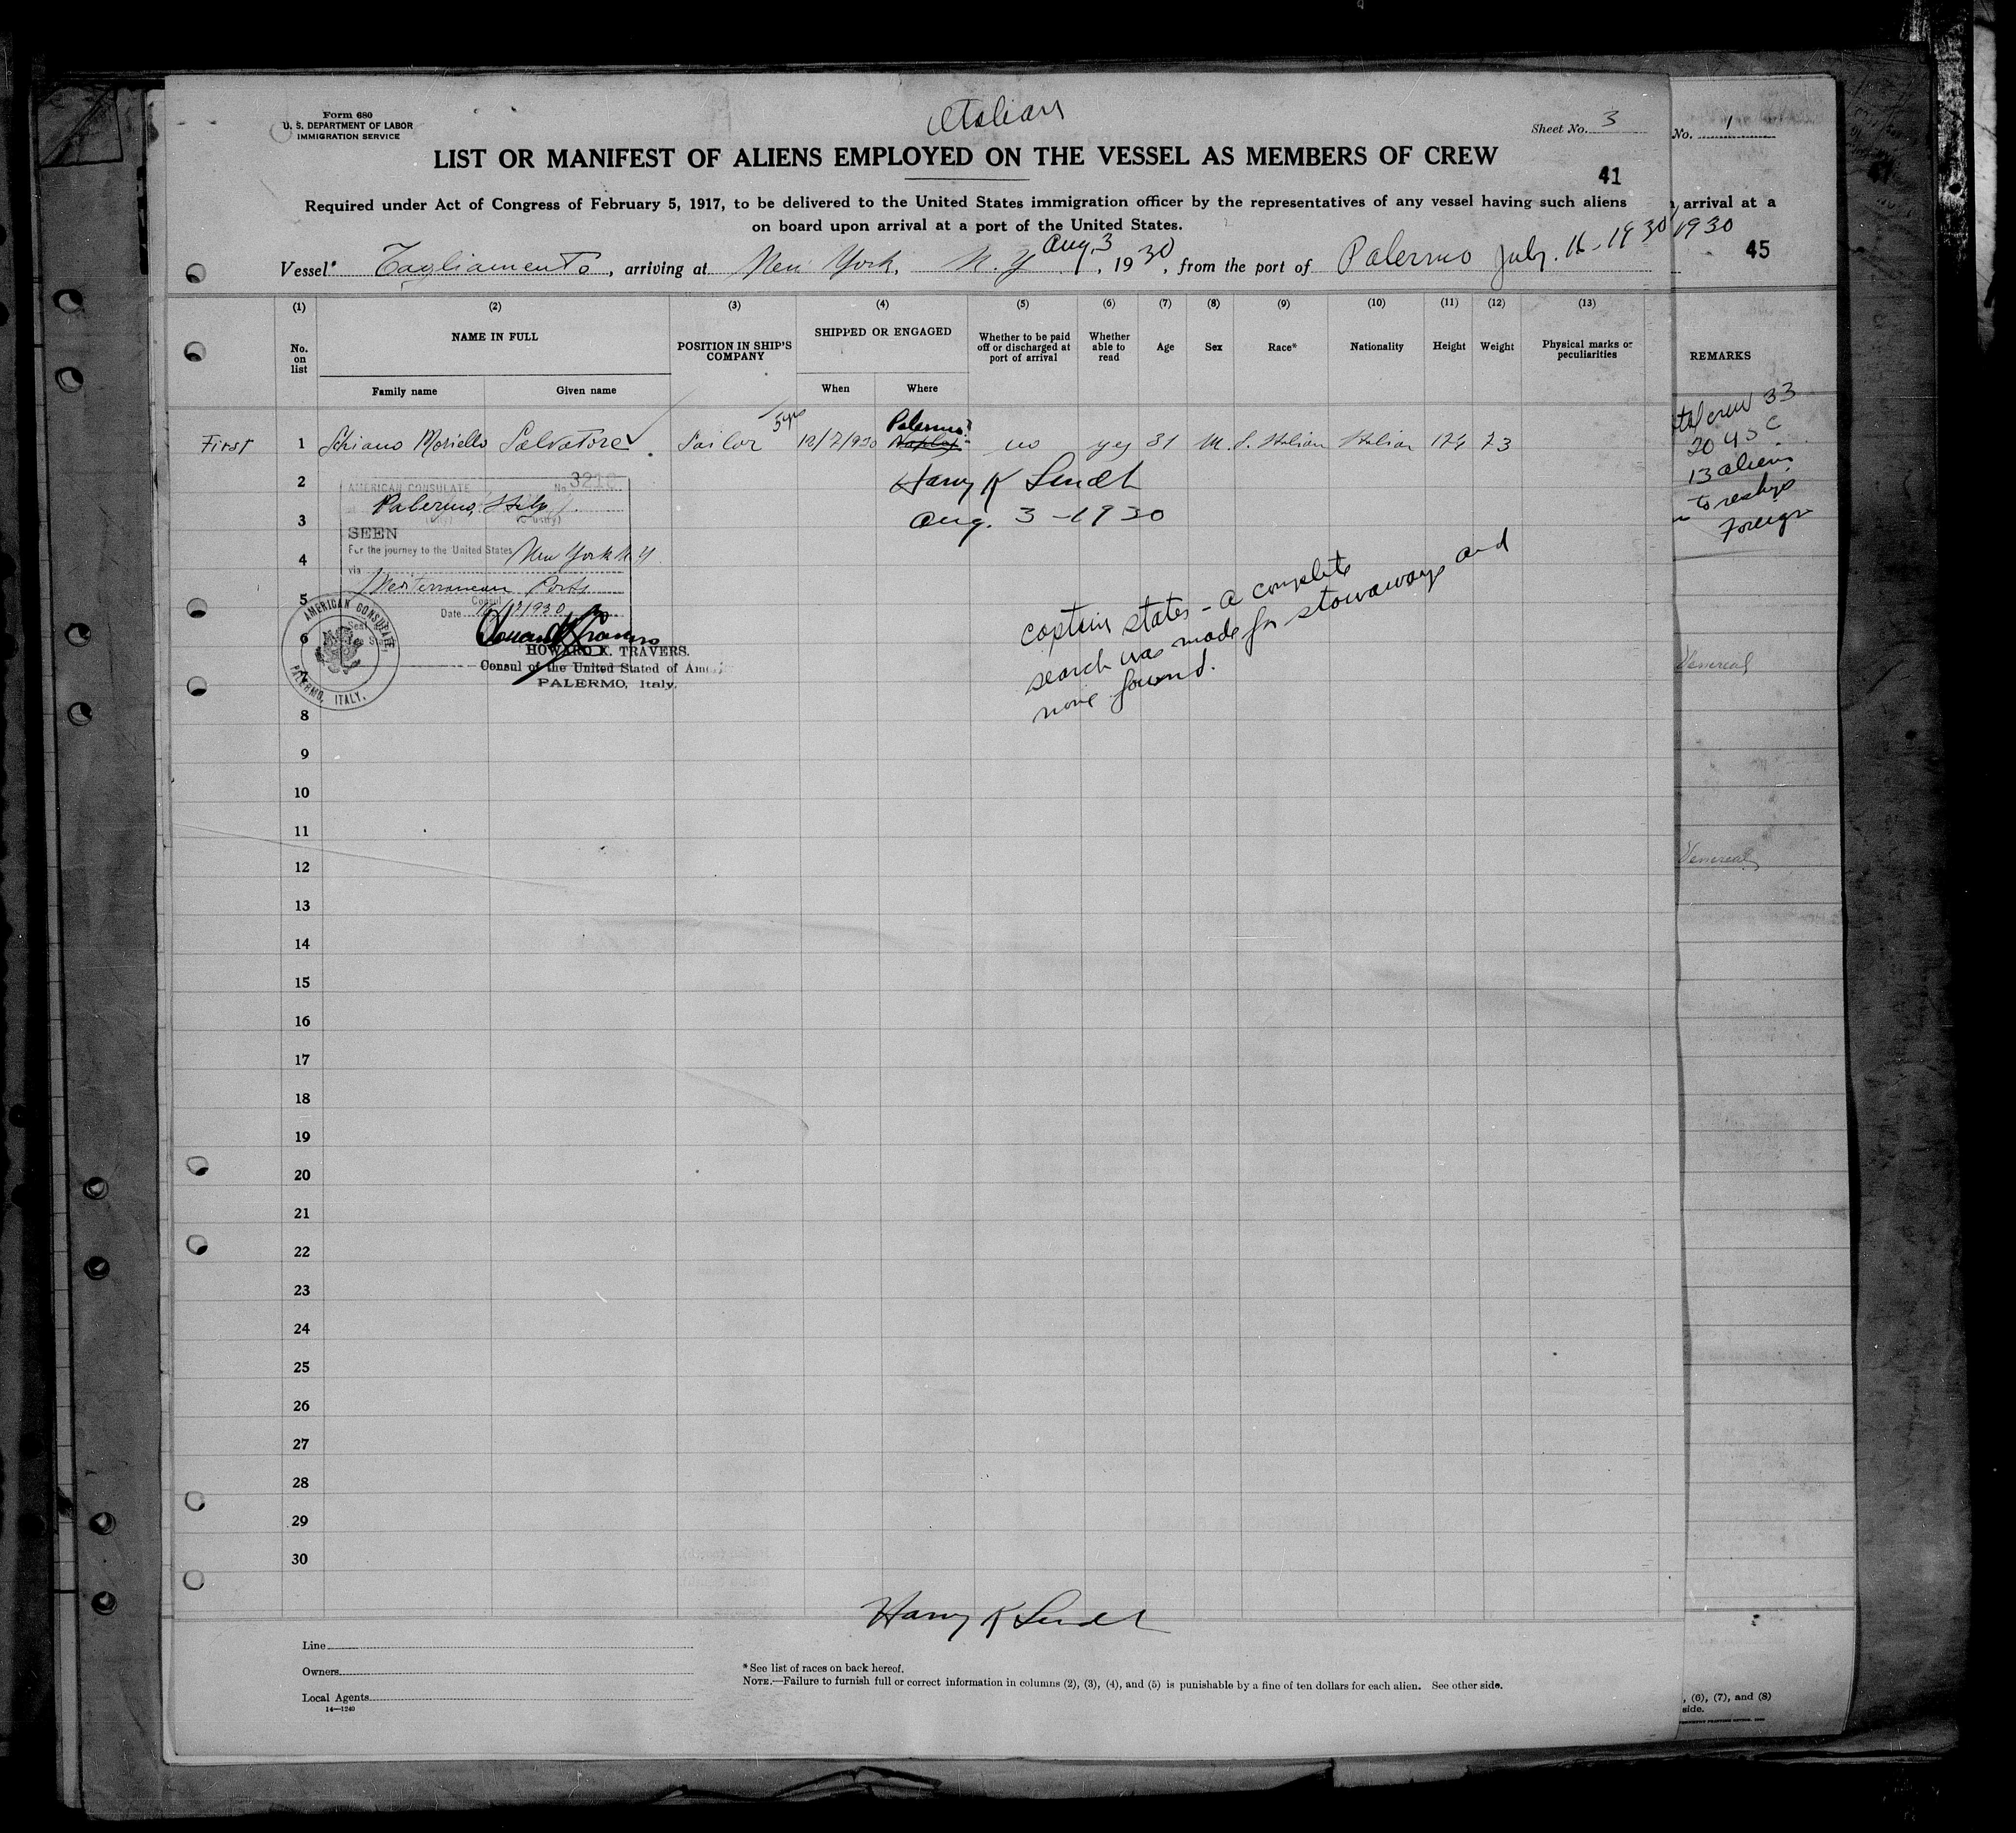 Form 680
U. S. DEPARTMENT OF LABOR
IMMIGRATION SERVICE
Italian
Sheet No. 3
No. 1
LIST OR MANIFEST OF ALIENS EMPLOYED ON THE VESSEL AS MEMBERS OF CREW
41
Required under Act of Congress of February 5, 1917, to be delivered to the United States immigration officer by the representatives of any vessel having such aliens
on board upon arrival at a port of the United States.
, arrival at a
1930
45
Vessel* Tagliamento, arriving at New York, N.Y Aug. 3, 1930, from the port of Palermo July. 16-1930
(1) (2) (3) (4) (5) (6) (7) (8) (9) (10) (11) (12) (13)
No. on list
NAME IN FULL
Family name
Given name
POSITION IN SHIP'S COMPANY
SHIPPED OR ENGAGED
When
Where
Whether to be paid off or discharged at port of arrival
Whether able to read
Age
Sex
Race*
Nationality
Height
Weight
Physical marks or peculiarities
REMARKS
First 1 Schiano Moriello Salvatore Sailor 5 yrs 12/7/930 Palermo Naples no yes 31 M. S. Italian Italian 174 73
crew 33
20 USC
13 aliens
to reship
Foreign
2
Harry K Lindt
3
Aug. 3-1930
AMERICAN CONSULATE No. 3210
Palermo, Italy
(City) (Country)
SEEN
For the journey to the United States New York N.Y.
via
Mediterranean Ports
Consul
Date 1930
HOWARD K. TRAVERS.
Consul of the United Stated of America
PALERMO, Italy.
AMERICAN CONSULATE,
PALERMO, ITALY.
4
5
6
Captain states - a complete
search was made for stowaways and
none found.
Venereal
8
9
10
11
12
Venereal
13
14
15
16
17
18
19
20
21
22
23
24
25
26
27
28
29
30
Harry K Lindt
Line
Owners
Local Agents
14—1240
*See list of races on back hereof.
NOTE.—Failure to furnish full or correct information in columns (2), (3), (4), and (5) is punishable by a fine of ten dollars for each alien. See other side.
, (6), (7), and (8)
side.